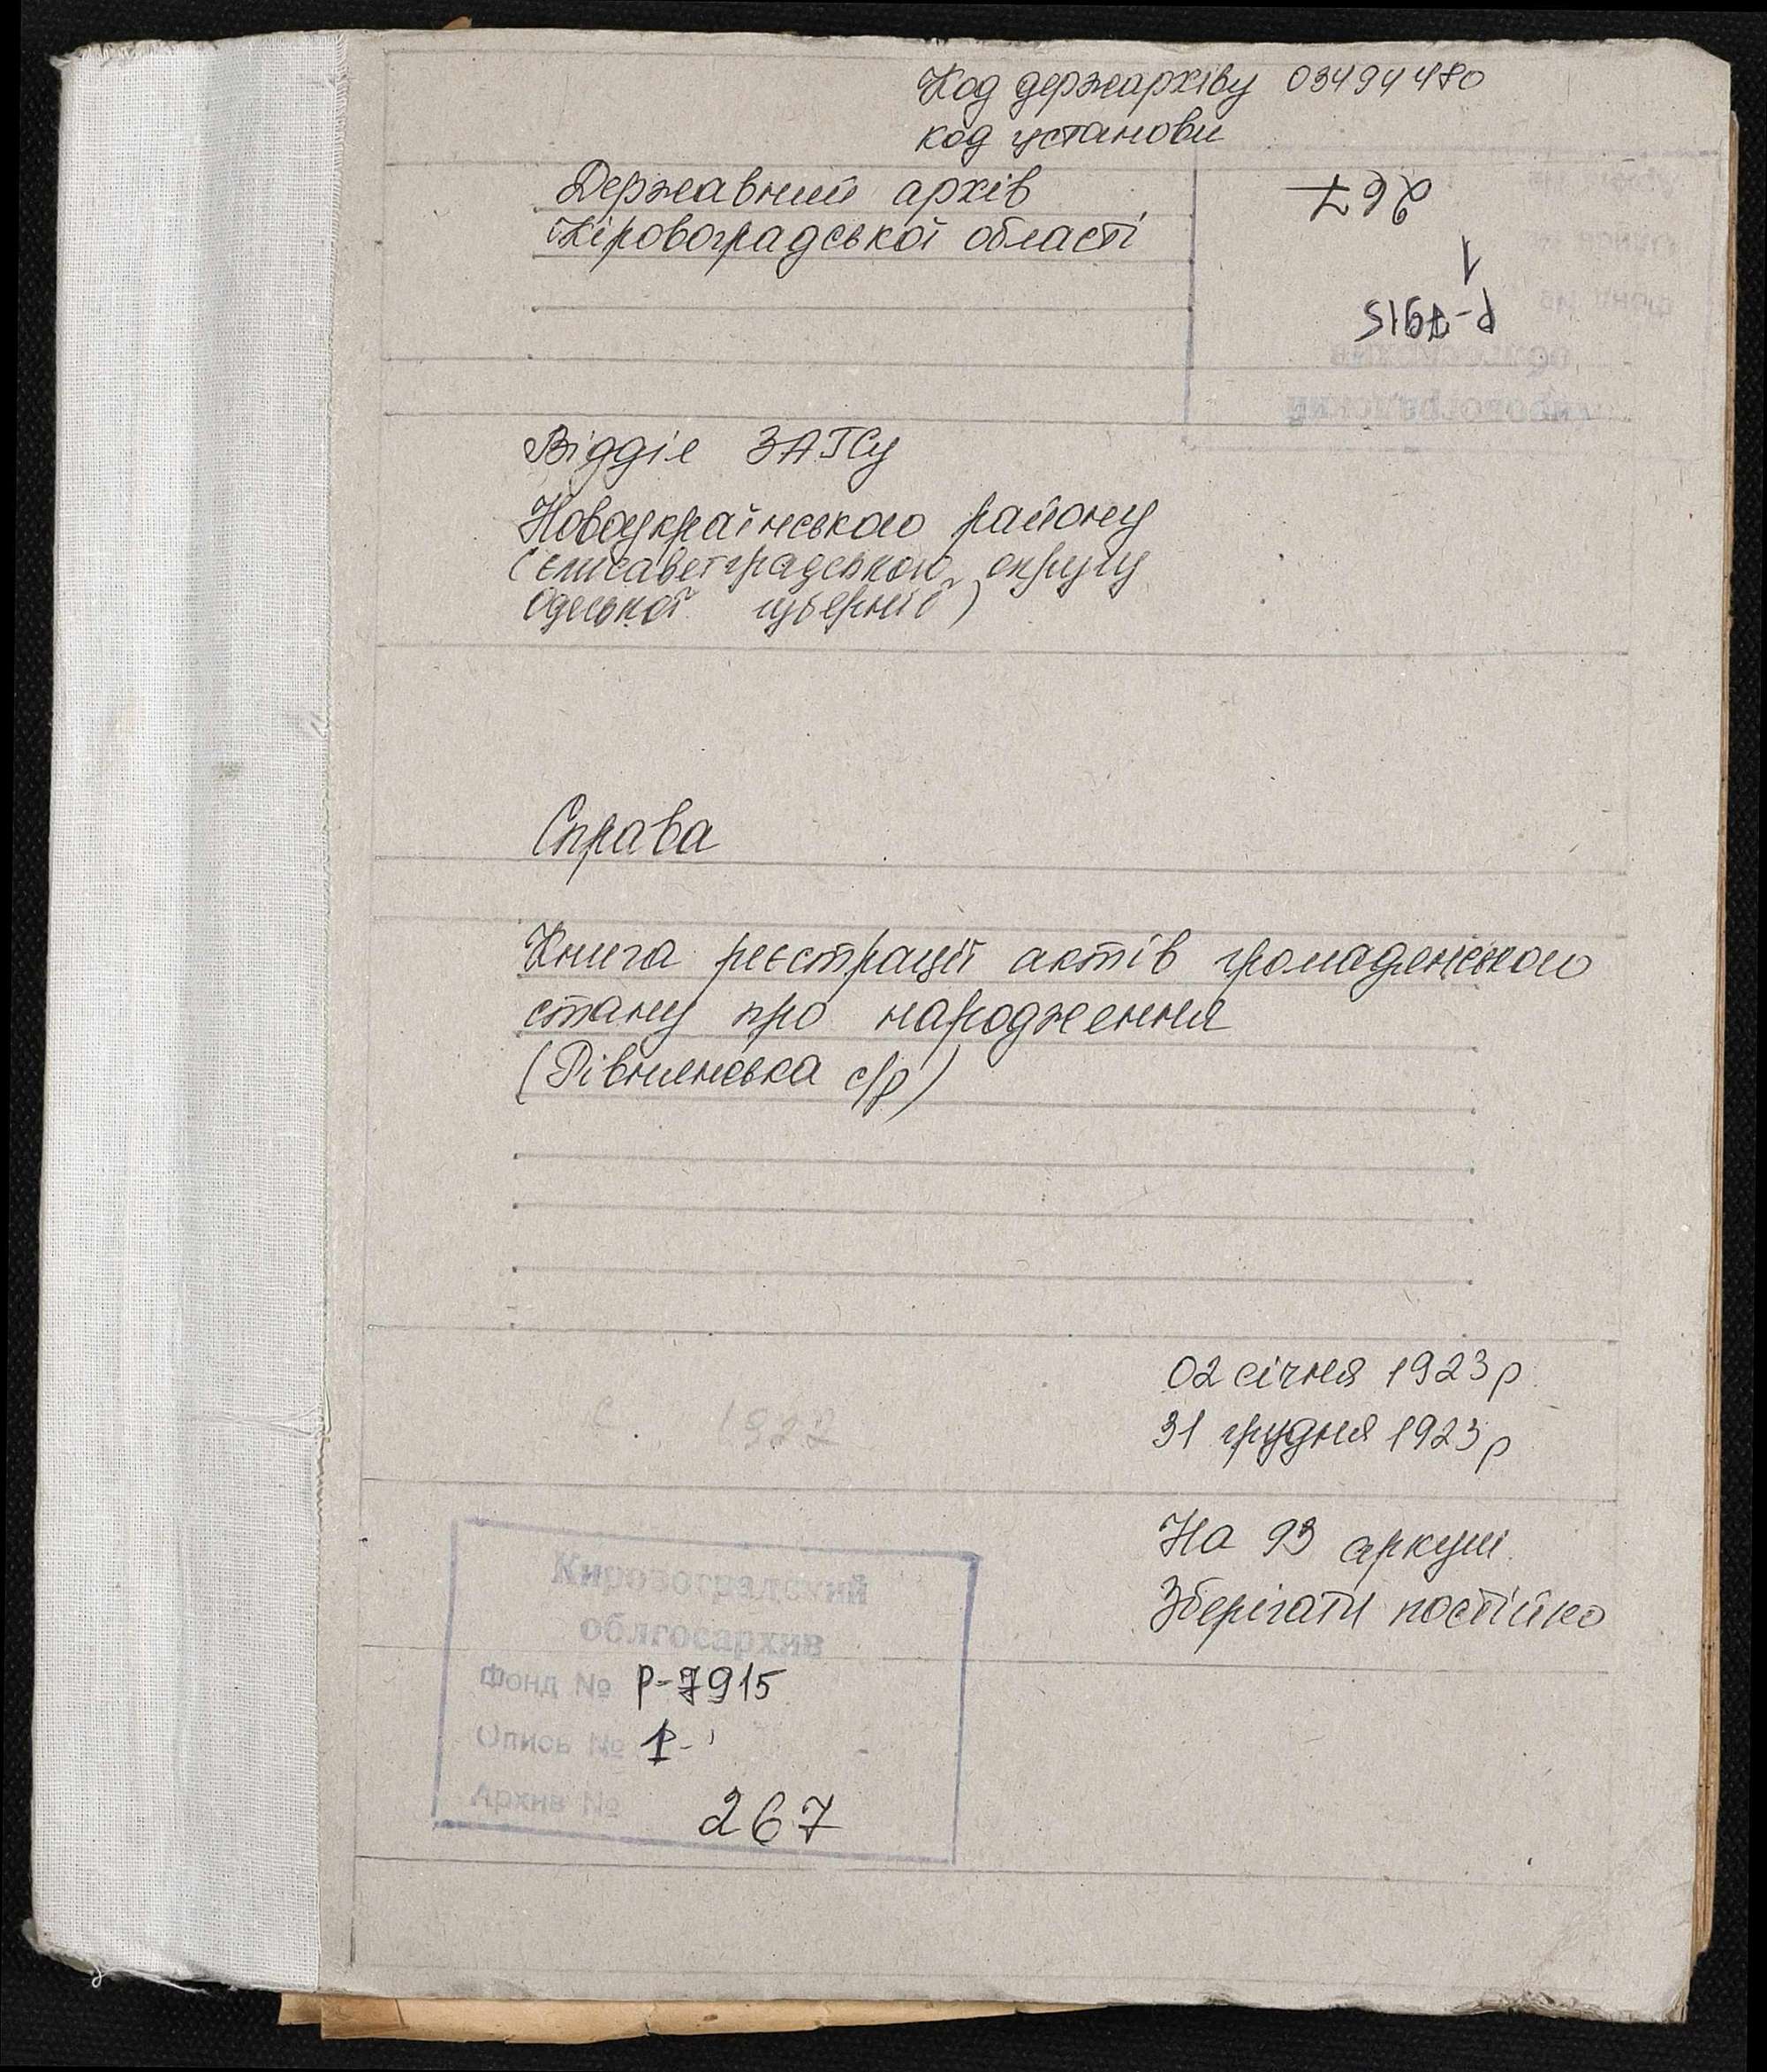 Код держархіву 03494480
код установи
Державний архів
Кіровоградської області
267
1
Р-7915
Відділ ЗАГСу
Новоукраїнського району
(Єлисаветградського округу
Одеської губернії)
Справа
Книга реєстрації актів громадянського
стану про народження
(Рівнянська с/р)
02 січня 1923 р.
31 грудня 1923 р
с. 1922
На 93 аркуші
Зберігати постійно
Кировоградский
облгосархив
Фонд № Р-7915
Опись № 1
Архив № 267